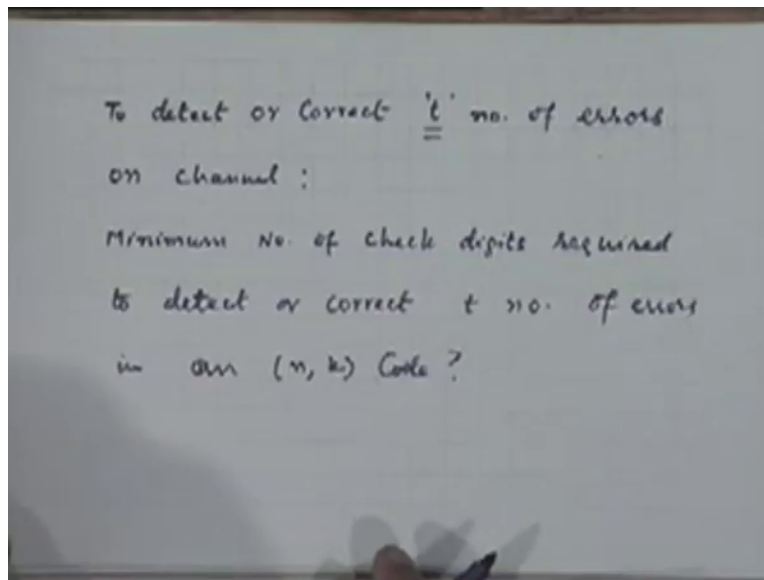 To detect or Correct 't' no. of errors
on channel :
Minimum No. of check digits required
to detect or correct t no. of errors
in an (n, k) Code ?